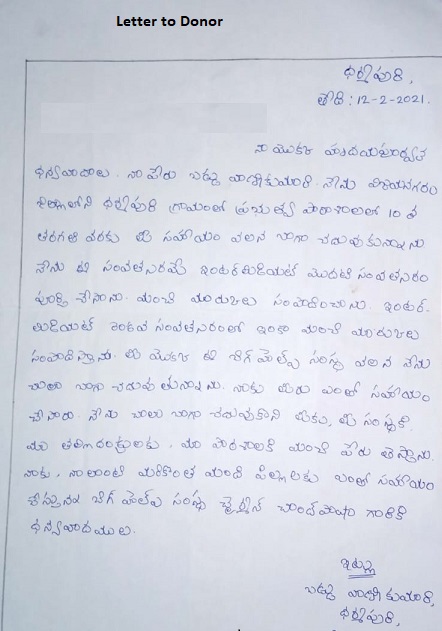 Letter to Donor
ధర్మపురి,
తేది : 12-2-2021.
నా యొక్క హృదయపూర్వక
ధన్యవాదాలు. నా పేరు బడ్డు వాణికుమారి. నేను విజయనగరం
జిల్లాలోని ధర్మపురి గ్రామంలో ప్రభుత్వ పాఠశాలలో 10 వ
తరగతి వరకు మీ సహాయం వలన బాగా చదువుకున్నాను
నేను ఈ సంవత్సరమే ఇంటర్మీడియెట్ మొదటి సంవత్సరం
పూర్తి చేసాను. మంచి మార్కులు సంపాదించాను. ఇంటర్-
మీడియెట్ రెండవ సంవత్సరంలో ఇంకా మంచి మార్కులు
సంపాదిస్తాను. మీ యొక్క ఈ బిగ్ హెల్ప్ సంస్థ వలన నేను
చాలా బాగా చదువుతున్నాను. నాకు మీరు ఎంతో సహాయం
చేసారు. నేను చాలా బాగా చదువుకొని మీకు, మీ సంస్థకి.
మా తల్లిదండ్రులకు, మా పాఠశాలకి మంచి పేరు తెస్తాను.
నాకు, నాలాంటి మరికొంత మంది పిల్లలకు ఎంతో సహాయం
చేస్తున్న బిగ్ హెల్ప్ సంస్థ చైర్మన్ చాంద్ పాషా గారికి
ధన్యవాదములు.
ఇట్లు
బడ్డు వాణి కుమారి,
ధర్మపురి,